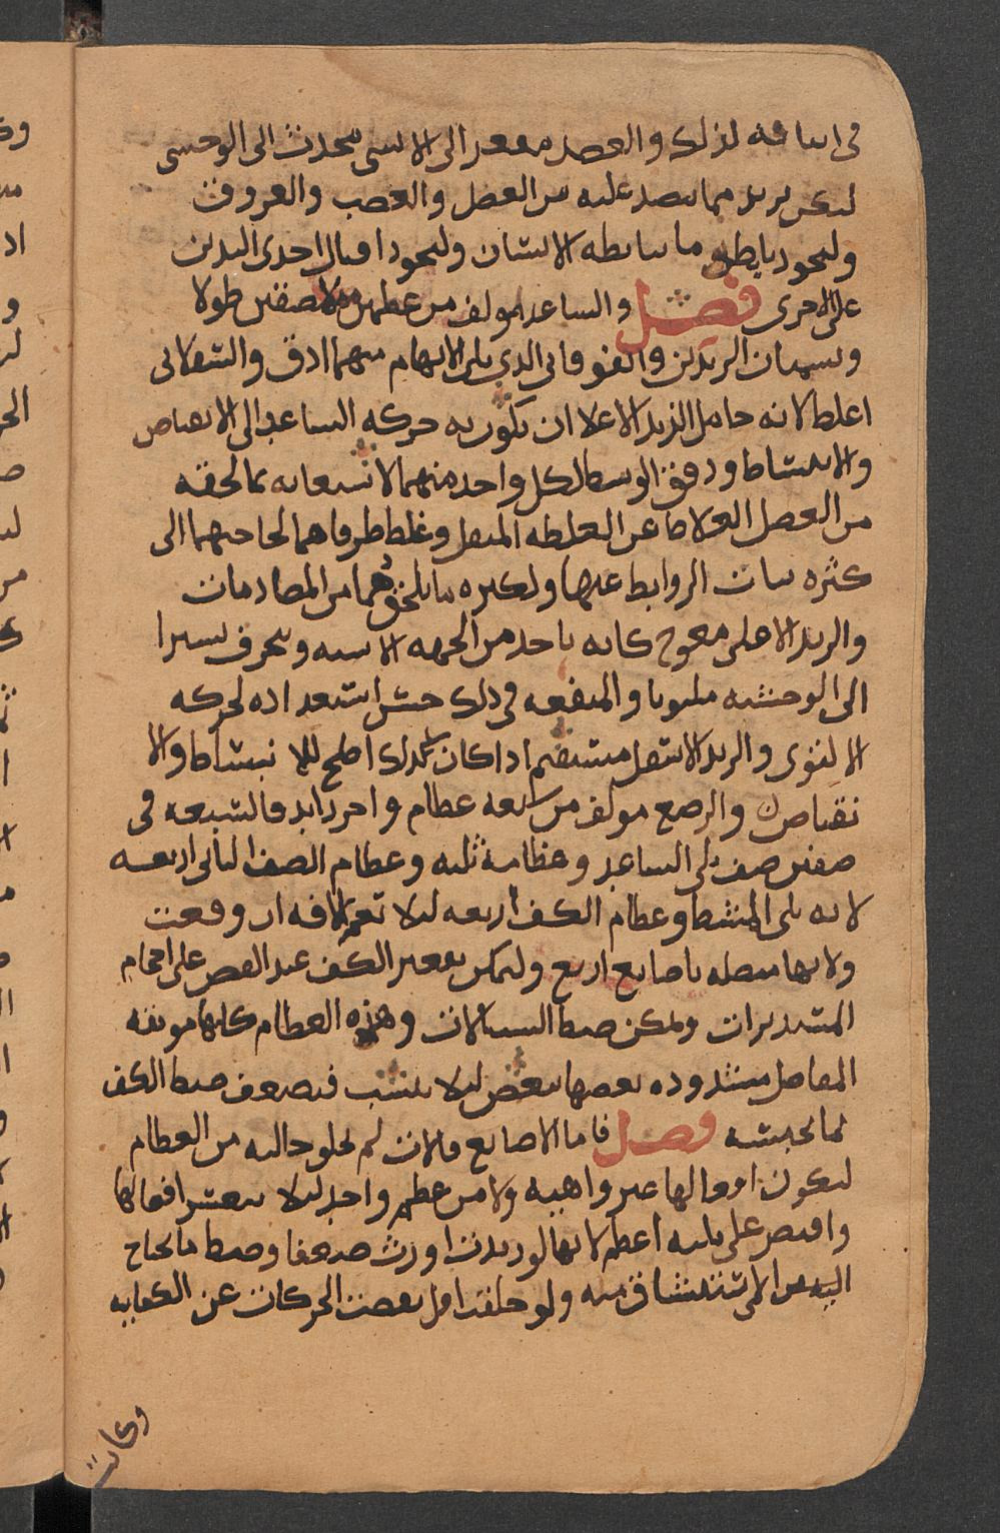 في اساقه لذلك والعضد مقعر الى الانسي محدث الى الوحشي
ليكن بريد مما تنضد عليه من العضل والعصب والعروق
وليجود تابطه ما يتابطه الانسان وليجود اقبال احدى اليدين
على الاخرى فصل والساعد مولف من عظمين متلاصقين طولا
ويسميان الزندين والفوقاني الذي يلي الابهام منهما ادق والسفلاني
اغلظ لانه حامل الزند الاعلا ان تكون به حركه الساعد الى الانقباض
والانبساط ودقق الوسط لكل واحد منهما لاستعانه بما لحقه
من العضل الغلاظ عن الغلظه المثقل وغلظ طرفاهما لحاجتهما الى
كثره نبات الروابط عنها ولكثره ما يلحقهما من المصادمات
والزند الاعلى معوج كانه ياخد من الجهه الانسيه وينحرف يسيرا
الى الوحشيه ملتويا والمنفعه في ذلك حسن استعداده لحركه
الالتوى والزند الاسفل مستقيم اذا كان كذلك اصلح للانبساط والا
نقباض والرسغ مولف من سبعه عظام واحر زايد فالسبعه في
صفين صف يلي الساعد وعظامه ثلثه وعظام الصف الثاني اربعه
لانه يلي المشط وعظام الكف اربعه ليلا تعم الافه ان وقعت
ولانها متصله باصابع اربع وليمكن تقعير الكف عند القبض على احجام
المستديرات ويمكن ضبط السيالات وهذه العظام كلها موثقه
المفاصل مشدوده بعضها ببعض ليلا يتشتت فيضعف ضبط الكف
لما يحبسه فصل فاما الاصابع فالات لم تخلو خاليه من العظام
ليكون افعالها غير واهيه ولا من عظم واحد ليلا تتعسر افعالها
واقتصر على ثلثه اعظم لانها لو زيدت اورث ضعفا وضبط ما يحتاج
اليه من الاستنشاق منه ولو خلقت اقل نقصت الحركات عن الكفايه
وكانت